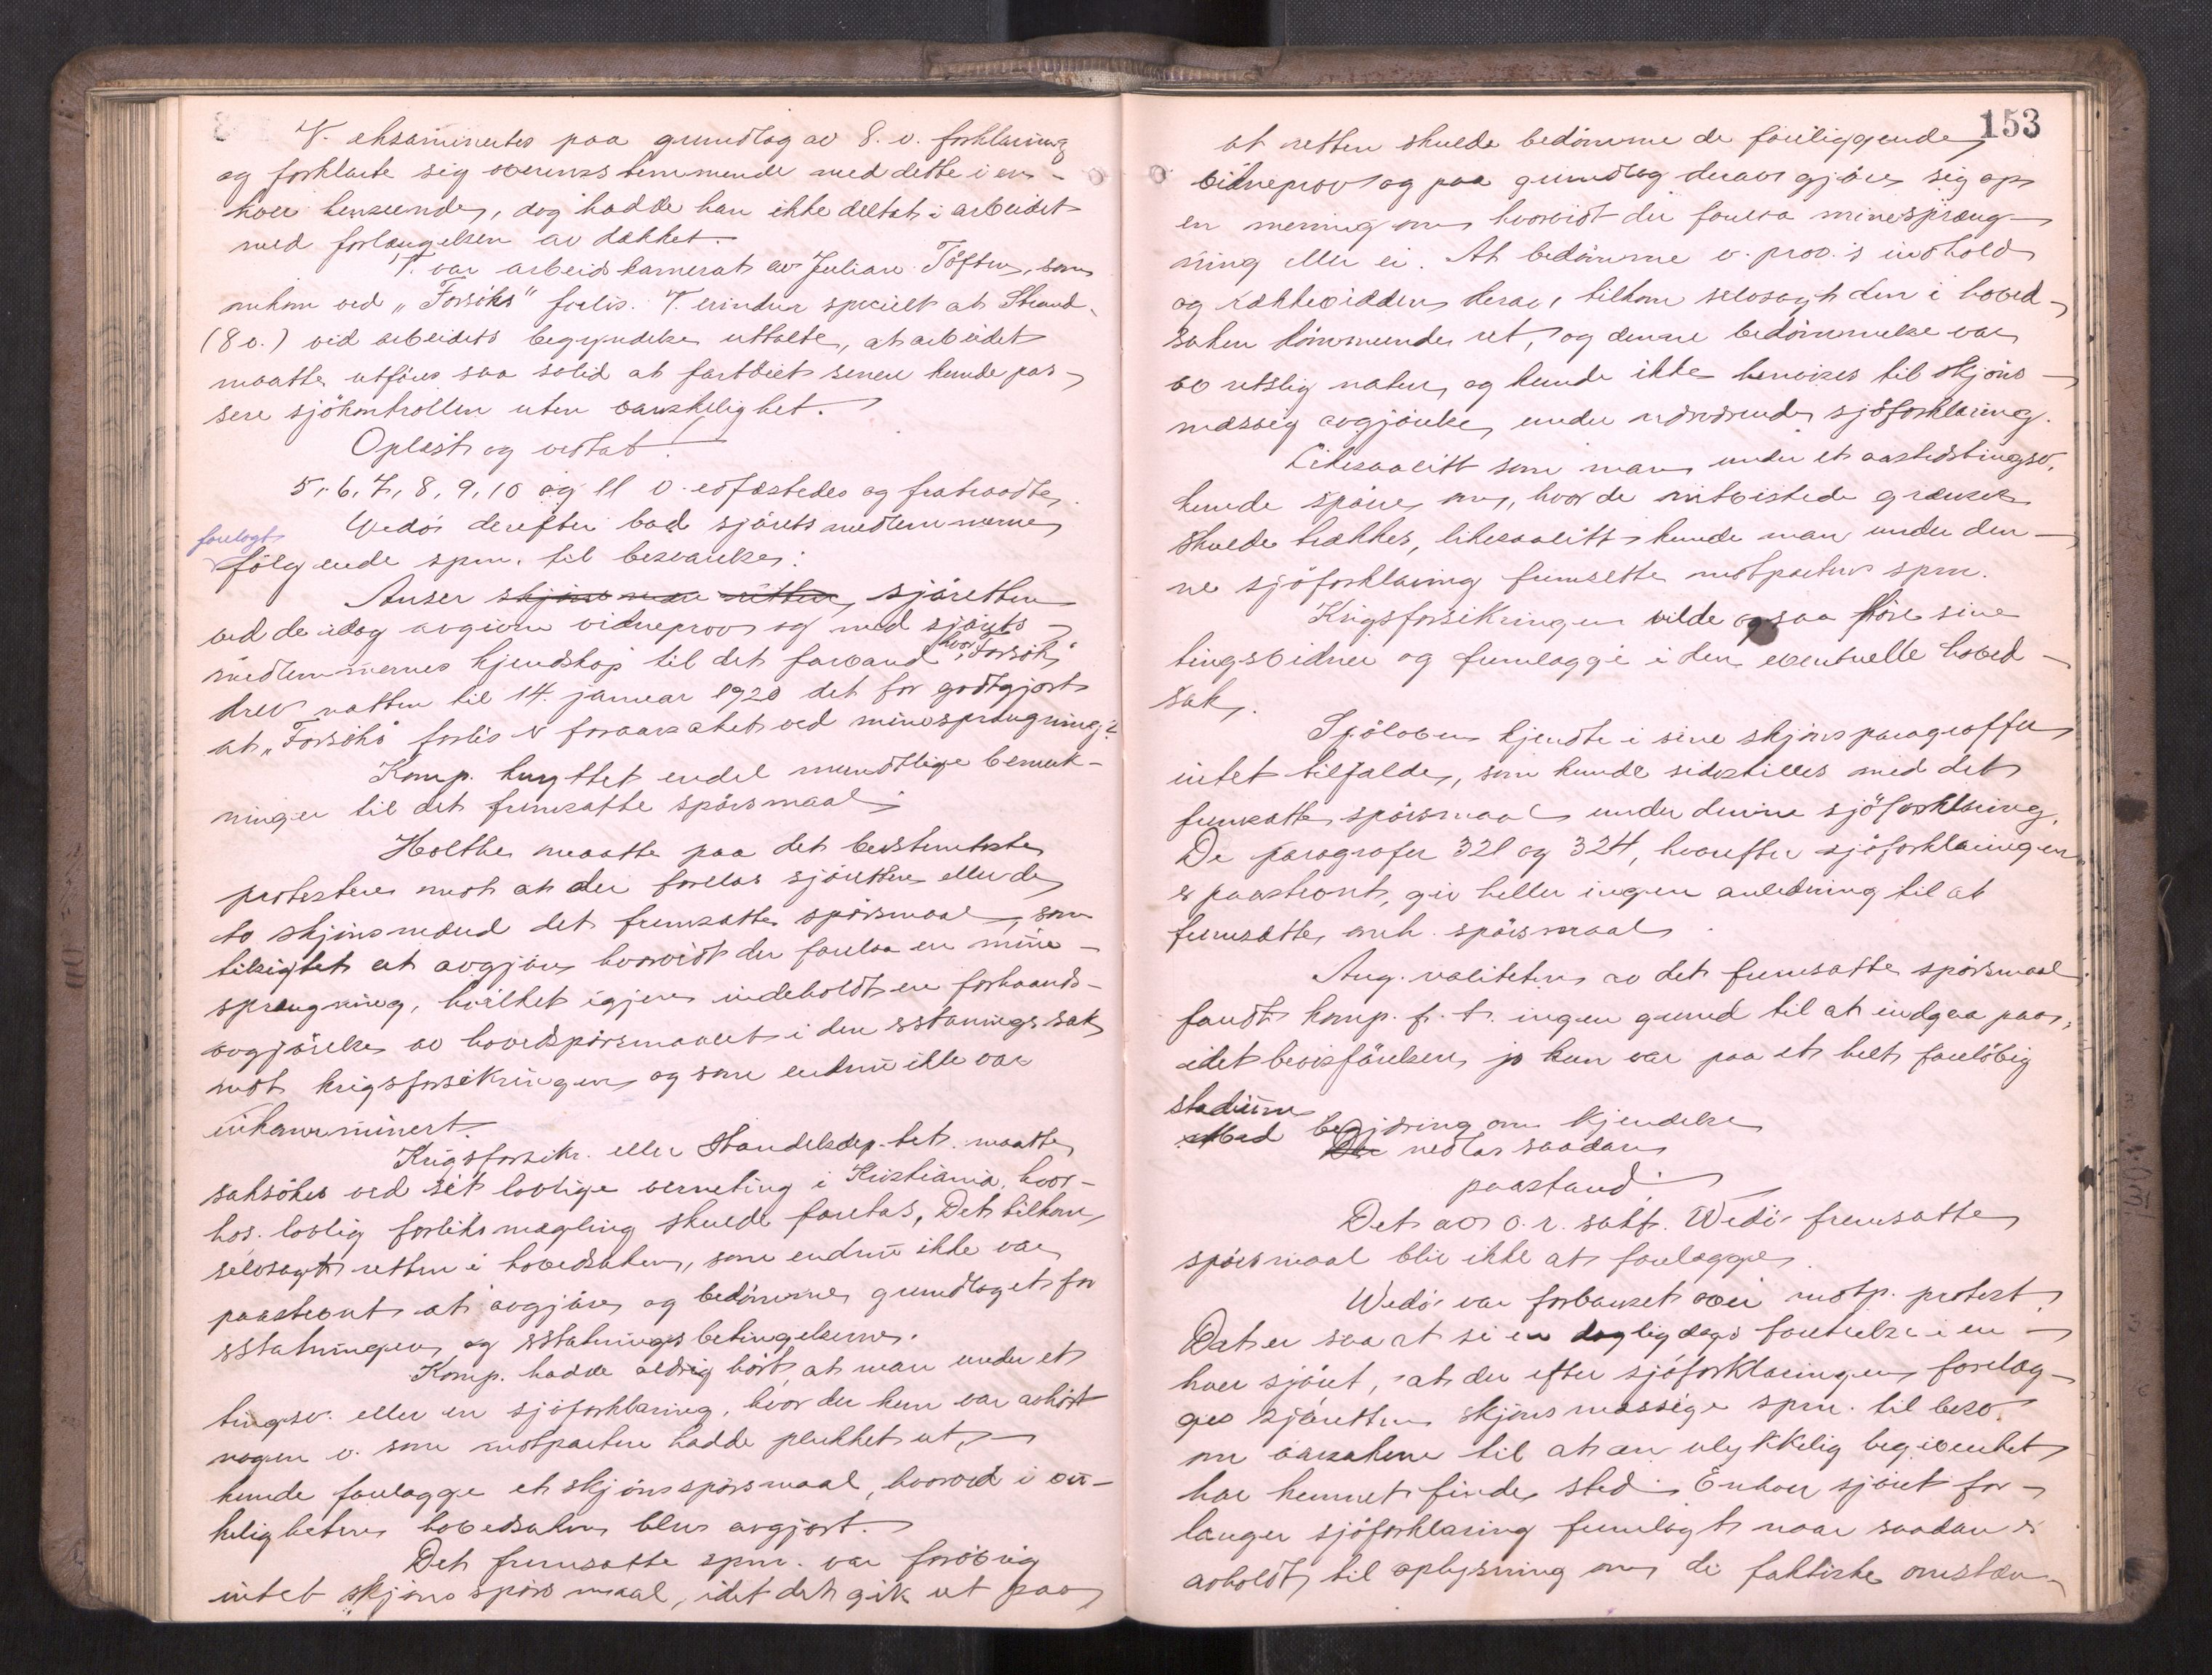 V. eksamineutes paa grundlag av 8. v. forklaring
og forklarte sig overensstemmende med dette i en-
hver henseende, dog hadde han ikke deltat i arbeidet
med forlængelsen av dækket.
V. var arbeidskamerat av Julian Töften, som
omkom ved „Forsöks" forlis. V. erindrer specielt at Strand
(8 v.) ved arbeidets begyndelse uttalte, at arbeidet
maatte utföres saa solid at fartöiet senere kunde pas-
sere sjökontrollen uten vanskelighet.
Oplæst og vedtat.
5, 6, 7, 8, 9, 10 og 11 v. edfæstedes og fratraadte.
Wedö derefter bad sjörets medlemmerne
forelagt
fölgende spm. til besvarelse:
Anser skjöns man retten, sjöretten
ved de idag avgivne vidneprov og med sjörets-
medlemmernes kjendskap til det farvand hvor „Forsök"
drev natten til 14. januar 1920 det for godtgjort
at „Forsöks" forlis er foraarsaket ved minesprængning?
Komp. knyttet endel mundtlige bemerk-
ninger til det fremsatte spörsmaal.
Holthe maatte paa det bestemteste
protestere mot at der forelæs sjöretten eller de
to skjönsmænd det fremsatte spörsmaal, som
tilsigtet at avgjöre hvorvidt der forelaa en mine-
sprængning, hvilket igjen indeholdt en forhaands-
avgjörelse av hovedspörsmaalet i den erstatningssak
mot krigsforsikringen og som endnu ikke var
inkaminert.
Krigsforsikr. eller Handelsdep.tet maatte
saksökes ved sit lovlige verneting i Kristiania, hvor-
hos lovlig forliksmægling skulde foretas. Det tilkom
selvsagt retten i hovedsaken, som endnu ikke var
paastevnt at avgjöre og bedömme grundlaget for
erstatningen og erstatningsbetingelserne.
Komp. hadde aldrig hört, at man under et
tingsv. eller en sjöforklaring, hvor der kun var avhört
nogen v. som motparten hadde plukket ut,
kunde forelægge et skjönsspörsmaal, hvorved i vir-
keligheten hovedsaken blev avgjort.
Det fremsatte spm. var forövrig
intet skjönsspörsmaal, idet det gik ut paa
153
at retten skulde bedömme de foreliggende
vidneprov og paa grundlag derav gjöre sig op
en mening om hvorvidt der forelaa minespræng-
ning eller ei. At bedömme v. prov.'s indhold
og rækkevidden derav, tilkom selvsagt den i hoved-
saken dömmende ret, og denne bedömmelse var
av retslig natur og kunde ikke henvises til skjöns-
mæssig avgjörelse under nærværende sjöforklaring.
Likesaalitt som man under et aastedstingsv.
kunde spörre om, hvor de omtvistede grænser
skulde trækkes, likesaalitt kunde man under den-
ne sjöforklaring fremsette motpartens spm.
Krigsforsikringen vilde ogsaa före sine
tingsvidner og fremlægge i den eventuelle hoved-
sak.
Sjöloven kjendte i sine skjönsparagraffer
intet tilfælde, som kunde sidestilles med det
fremsatte spörsmaal under denne sjöforklaring.
De paragrafer 321 og 324, hvorefter sjöforklaringen
er paastevnt, gir heller ingen anledning til at
fremsætte omh. spörsmaal.
Ang. realiteten av det fremsatte spörsmaal
fandt komp. f. t. ingen grund til at indgaa paa,
idet bevisförelsen jo kun var paa et helt foreløbig
stadium
Med begjæring om kjendelse
Der nedlas saadan
paastand:
Det av o.r. sakf. Wedö fremsatte
spörsmaal blir ikke at forelægge.
Wedö var forbauset over motp. protest.
Det er saa at si en dagligdags foreteelse i en-
hver sjöret, at der efter sjöforklaringen forelæg-
ges sjöretten skjönsmæssige spm. til besv.
om aarsakene til at en ulykkelig begivenhet
har kunnet finde sted. Enhver sjöret for-
langer sjöforklaring fremlagt naar saadan er
avholdt, til oplysning om de faktiske omstæn-